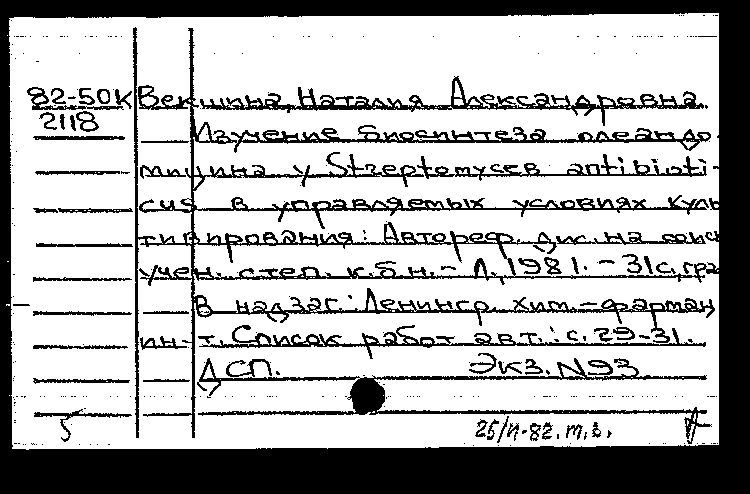 82-50К Векшина, Наталия Александровна.
2118 Изучение биосинтеза олеандо-
мицина у Streptomyces antibioti-
cus в управляемых условиях куль
тивирования: Автореф. дис. на соиск
учен. степ. к.б.н. - Л., 1981. - 31с, гра
В надзаг.: Ленингр. хим.-фармац
ин-т. Список работ авт.: с. 29-31.
ДСП. Экз. N93
5 82. т.з.